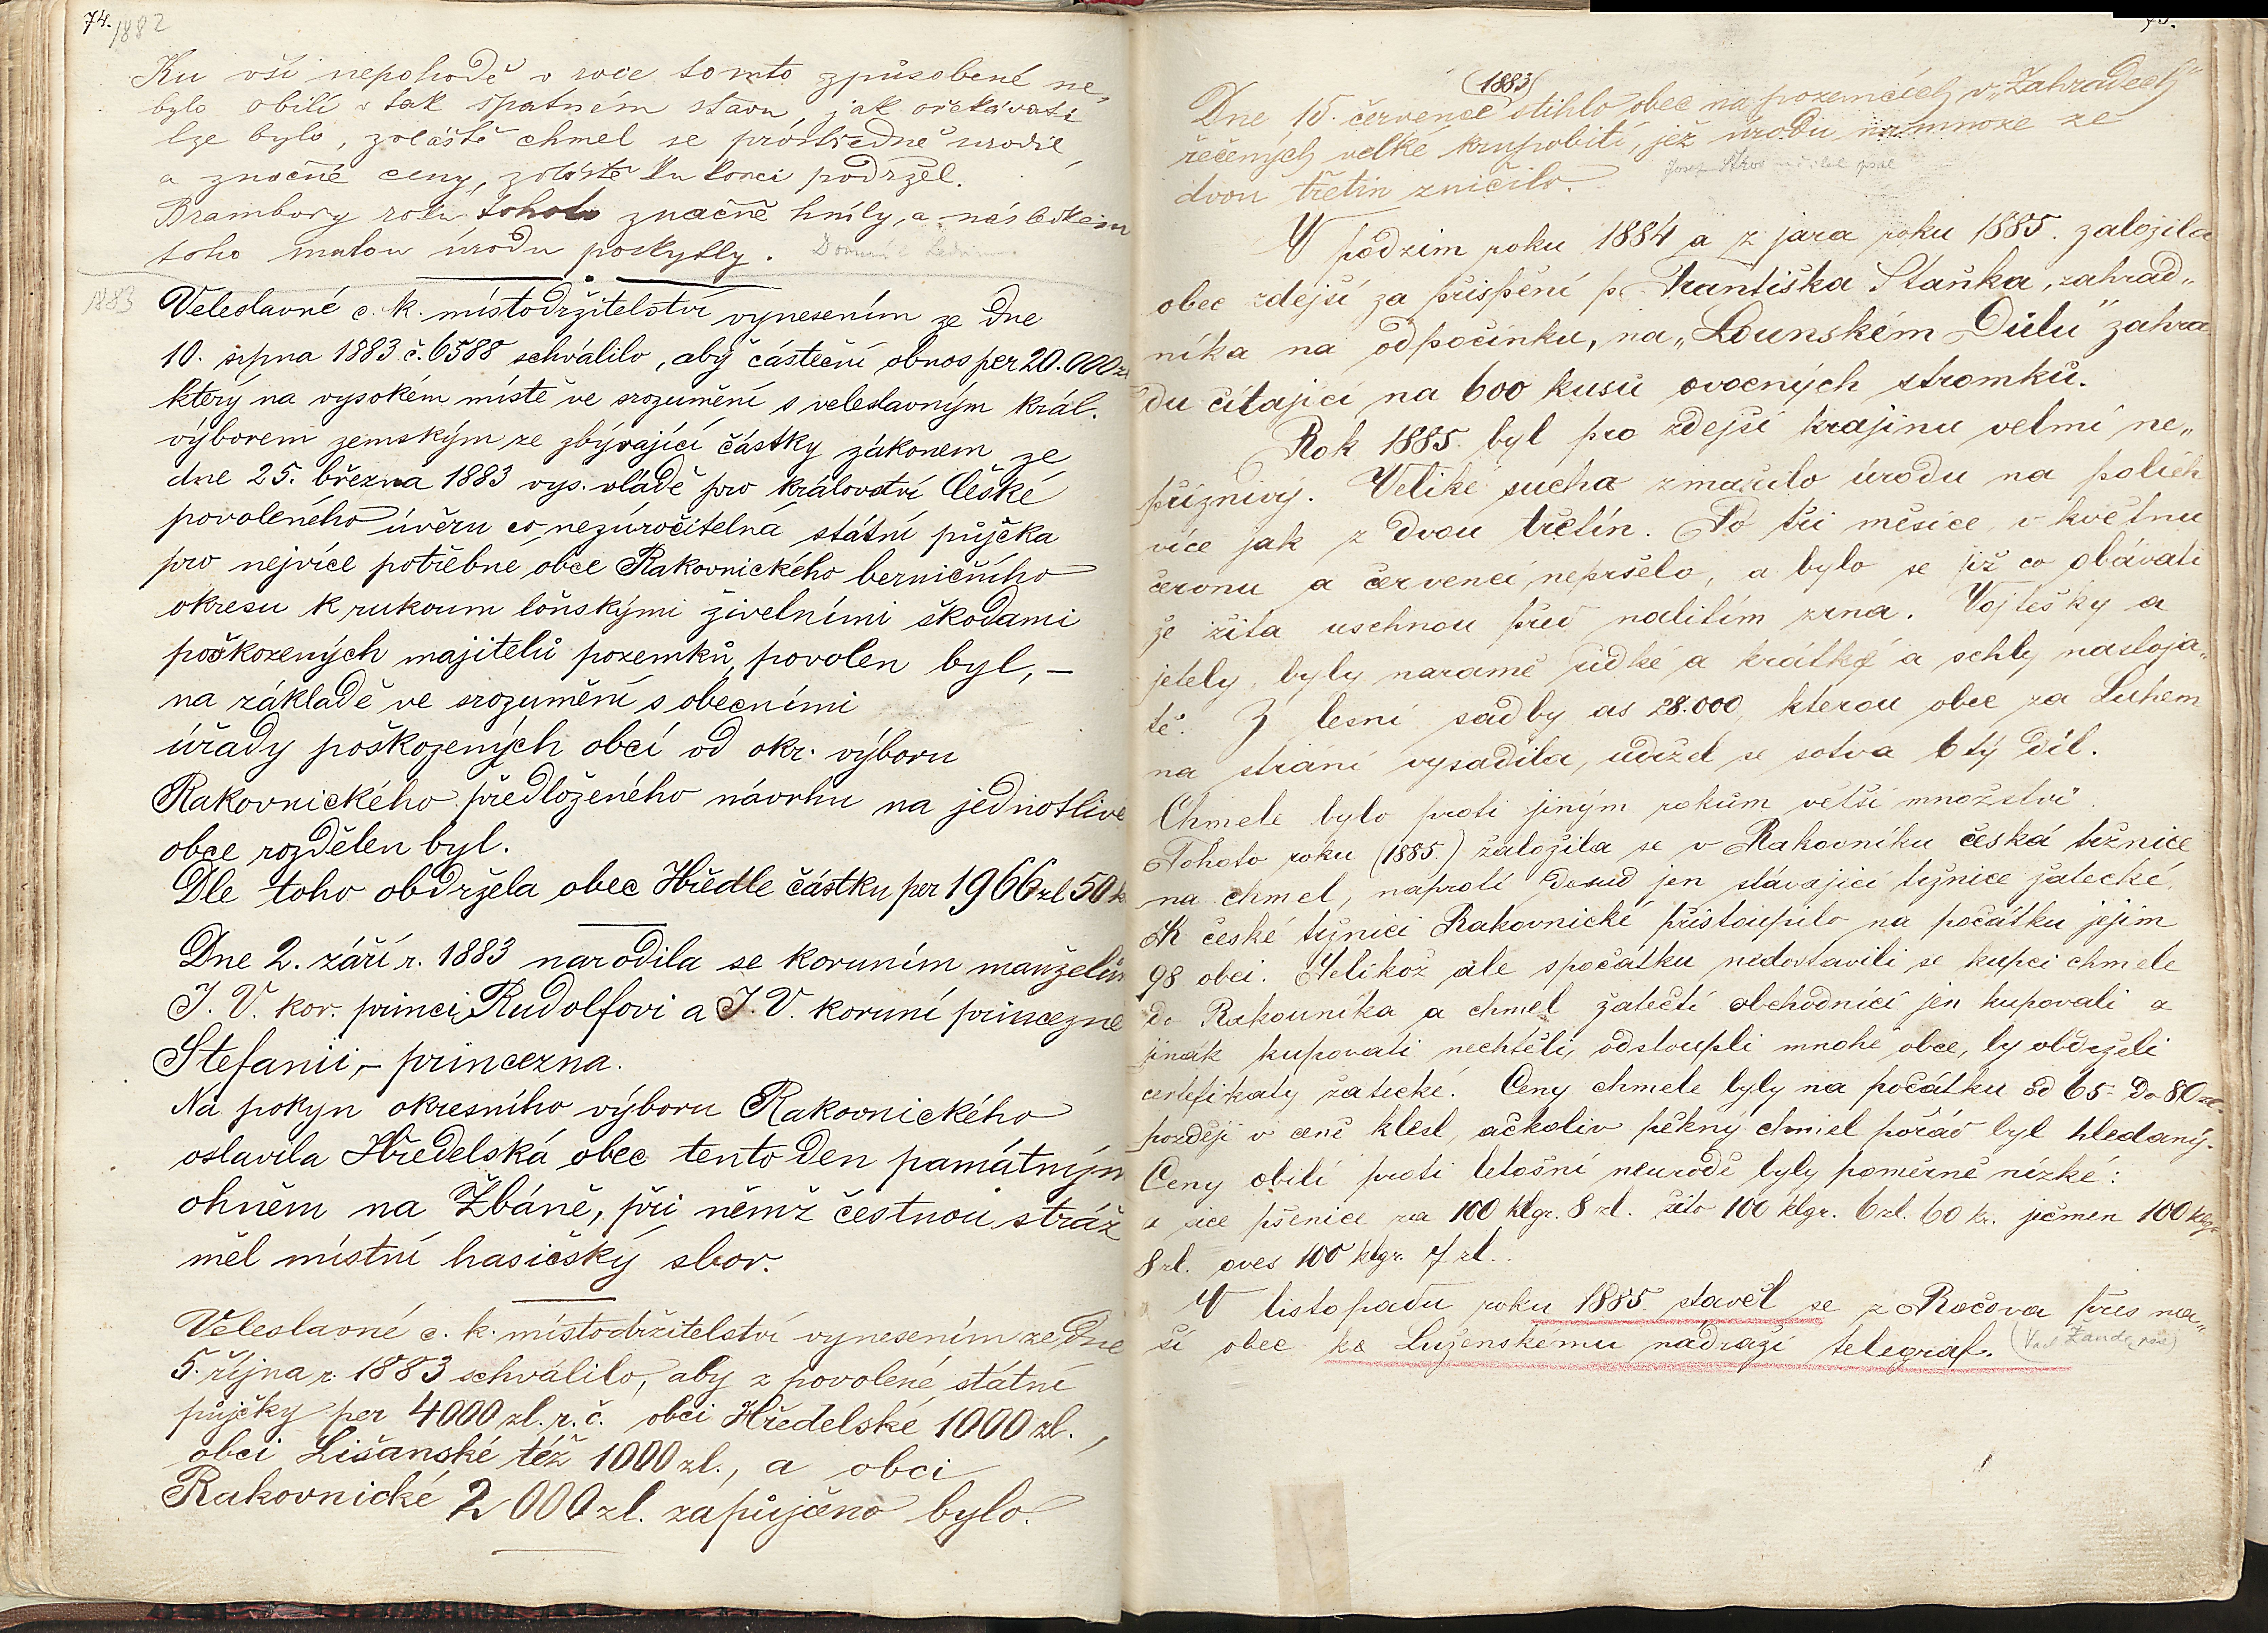 74.
1882
Ku vší nepohodě v roce tomto způsobené ne„
bylo obilí v tak špatném stavu jak očekávati
lze bylo, zvláště chmel se prostředně urodil,
a značné ceny, zvláště ku konci podržel.
Brambory roku tohoto značně hnily, a následkem
toho malou úrodu poskytly.
1883
Veleslavné c. k. místodržitelství vynesením ze dne
10. srpna 1883 č. 6588 schválilo, aby částeční obnos per 20.000 zl
který na vysokém místě ve srozumění s veleslavným král.
výborem zemským ze zbývající částky zákonem ze
dne 25. března 1883 vys. vládě pro království České
povoleného úvěru co nezúročitelná státní půjčka
pro nejvíce potřebné obce Rakovnického berničního
okresu k rukoum loňskými živelními škodami
poškozených majitelů pozemků, povolen byl, –
na základě ve srozumění s obecními
úřady poškozených obcí od okr. výboru
Rakovnického předloženého návrhu na jednotlivé
obce rozdělen byl.
Dle toho obdržela obec Hředle částku per 1966 zl 50 k
Dne 2. září r. 1883 narodila se koruním manželům
J. V. kor. princi Rudolfovi a J. V. koruní princezně
Stefanii, – princezna.
Na pokyn okresního výboru Rakovnického
oslavila Hředelská obec tento den památným
ohněm na Žbáně, při němž čestnou stráž
měl místní hasičský sbor.
Veleslavné c. k. místodržitelství vynesením ze dne
5. října r. 1883 schválilo, aby z povolené státní
půjčky per 4000 zl. r. č. obci Hředelské 1000 zl.,
obci Lišanské též 1000 zl., a obci
Rakovnické 2000 zl. zapůjčeno bylo.
75.
(1883)
Dne 15. července stihlo obec na pozemcích v „Zahradech“
řečených velké krupobití, jež úrodu na mnoze ze
dvou třetin zničilo.
V podzim roku 1884 a z jara roku 1885. založila
obec zdejší za přispění p. Františka Staňka, zahrad„
níka na odpočinku, na „Lounském Důlu“ zahra
du čítající na 600 kusů ovocných stromků.
Rok 1885. byl pro zdejší krajinu velmi ne„
příznivý. Veliké sucha zmařilo úrodu na polích
více jak z dvou třetin. Po tři měsíce v květnu
červnu a červenci nepršelo, a bylo se již co obávati
že žita uschnou před nalitím zrna. Vojtěšky a
jetely, byly naramě řídké a krátké a schly nastoja„
tě. Z lesní sadby as 28.000, kterou obec za Luhem
na stráni vysadila, udržel se sotva 6tý díl.
Chmele bylo proti jiným rokům větší množství.
Tohoto roku (1885.) založila se v Rakovníku česká tržnice
na chmel, naproti dosud jen stávající tržnice žatecké.
K české tržnici Rakovnické přistoupilo na počátku jejím
98 obcí. Jelikož ale spočátku nedostavili se kupci chmele
do Rakovníka a chmel žatečtí obchodníci jen kupovali a
jinak kupovati nechtěli, odstoupli mnohé obce, by obdrželi
certifikaty žatecké. Ceny chmele byly na počátku od 65 – do 80 zl.
později v ceně klesl, ačkoliv pěkný chmel pořád byl hledaný.
Ceny obilí proti letošní neurodě byly poměrně nízké:
a sice pšenice za 100 klgr. 8 zl. žito 100 klgr. 6 zl. 60 kr. ječmen 100 klgr.
8 zl. oves 100 klgr. 7 zl.
V listopadu roku 1885. stavěl se z Ročova přes na„
ší obec ke Luženskému nádraží telegraf.